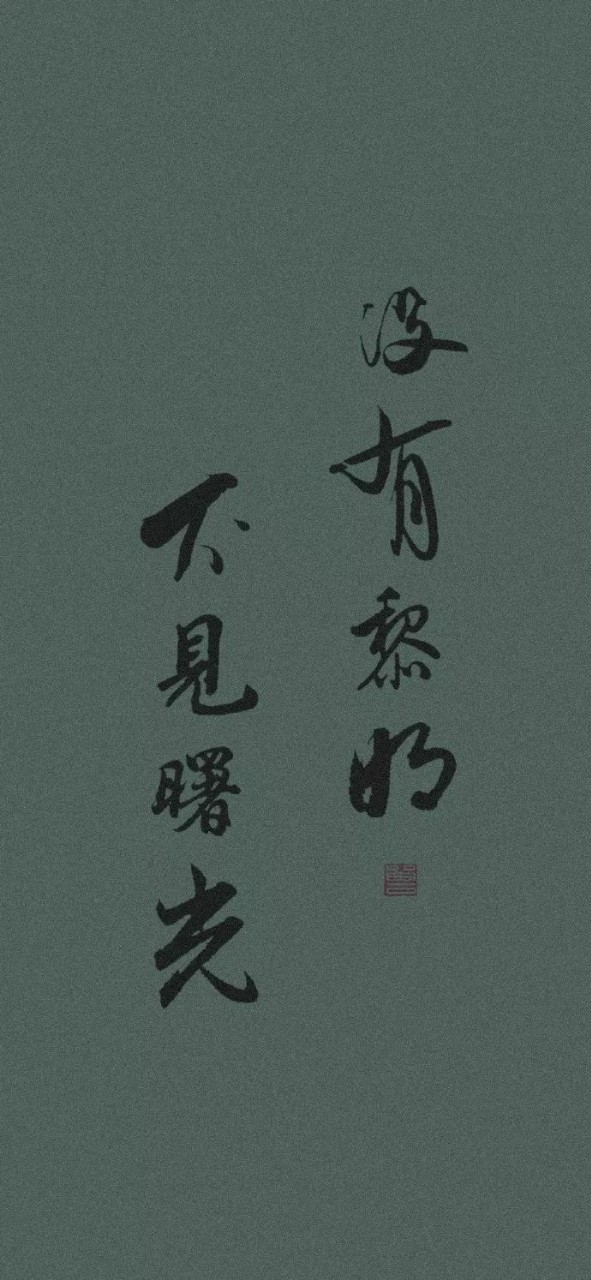 没有黎明
不見曙光